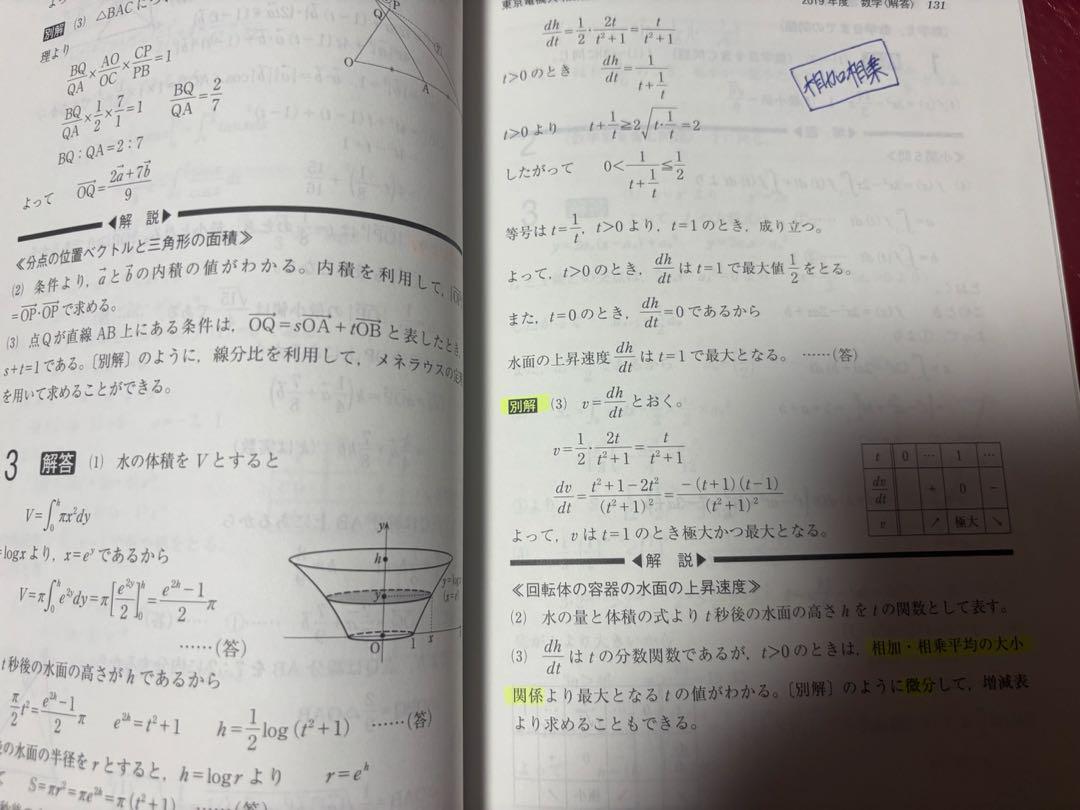 別解 (3) △BACに
理より
BQ/QA×AO/OC×CP/PB=1
BQ/QA×1/2×7/1=1 BQ/QA=2/7
BQ:QA=2:7
よって OQ→=(2a→+7b→)/9
Q P
O
A
◀解 説▶
≪分点の位置ベクトルと三角形の面積≫
(2) 条件より,a→とb→の内積の値がわかる。内積を利用して,
=OP→・OP→で求める。
(3) 点Qが直線AB上にある条件は,OQ→=sOA→+tOB→と表したとき,
s+t=1である。〔別解〕のように,線分比を利用して,メネラウスの定理
を用いて求めることができる。
3 解答 (1) 水の体積をVとすると
V=∫₀ʰπx²dy
=logxより,x=eʸであるから
V=π∫₀ʰe²ʸdy=π[e²ʸ/2]₀ʰ=(e²ʰ−1)/2 π
……(答)
y
h
y
O 1 x
t秒後の水面の高さがhであるから
π/2 t²=(e²ʰ−1)/2 π e²ʰ=t²+1 h=1/2 log(t²+1) ……(答)
の水面の半径をrとすると,h=logrより r=eʰ
S=πr²=πe²ʰ=π(t²+1) ……(答)
2019年度 数学〈解答〉 131
dh/dt=1/2・2t/(t²+1)=t/(t²+1)
t>0のとき dh/dt=1/(t+1/t)
相加相乗
t>0より t+1/t≧2√(t・1/t)=2
したがって 0<1/(t+1/t)≦1/2
等号はt=1/t,t>0より,t=1のとき,成り立つ。
よって,t>0のとき,dh/dtはt=1で最大値1/2をとる。
また,t=0のとき,dh/dt=0であるから
水面の上昇速度dh/dtはt=1で最大となる。……(答)
別解 (3) v=dh/dtとおく。
v=1/2・2t/(t²+1)=t/(t²+1)
dv/dt=(t²+1−2t²)/(t²+1)²=−(t+1)(t−1)/(t²+1)²
t 0 … 1 …
dv/dt + 0 −
v ↗ 極大 ↘
よって,vはt=1のとき極大かつ最大となる。
◀解 説▶
≪回転体の容器の水面の上昇速度≫
(2) 水の量と体積の式よりt秒後の水面の高さhをtの関数として表す。
(3) dh/dtはtの分数関数であるが,t>0のときは,相加・相乗平均の大小
関係より最大となるtの値がわかる。〔別解〕のように微分して,増減表
より求めることもできる。